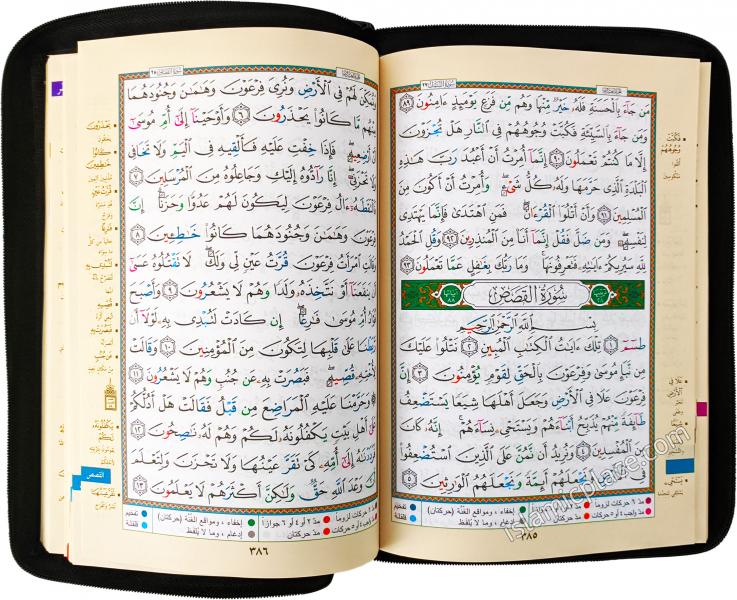 سورة النمل ٢٧
مَن جَآءَ بِٱلْحَسَنَةِ فَلَهُۥ خَيْرٌ مِّنْهَا وَهُم مِّن فَزَعٍ يَوْمَئِذٍ ءَامِنُونَ ٨٩
وَمَن جَآءَ بِٱلسَّيِّئَةِ فَكُبَّتْ وُجُوهُهُمْ فِى ٱلنَّارِ هَلْ تُجْزَوْنَ
إِلَّا مَا كُنتُمْ تَعْمَلُونَ ٩٠ إِنَّمَآ أُمِرْتُ أَنْ أَعْبُدَ رَبَّ هَٰذِهِ
ٱلْبَلْدَةِ ٱلَّذِى حَرَّمَهَا وَلَهُۥ كُلُّ شَىْءٍ وَأُمِرْتُ أَنْ أَكُونَ مِنَ
ٱلْمُسْلِمِينَ ٩١ وَأَنْ أَتْلُوَا۟ ٱلْقُرْءَانَ فَمَنِ ٱهْتَدَىٰ فَإِنَّمَا يَهْتَدِى
لِنَفْسِهِۦ وَمَن ضَلَّ فَقُلْ إِنَّمَآ أَنَا۠ مِنَ ٱلْمُنذِرِينَ ٩٢ وَقُلِ ٱلْحَمْدُ
لِلَّهِ سَيُرِيكُمْ ءَايَٰتِهِۦ فَتَعْرِفُونَهَا وَمَا رَبُّكَ بِغَٰفِلٍ عَمَّا تَعْمَلُونَ ٩٣
سُورَةُ القَصَصِ
بِسْمِ ٱللَّهِ ٱلرَّحْمَٰنِ ٱلرَّحِيمِ
طسٓمٓ ١ تِلْكَ ءَايَٰتُ ٱلْكِتَٰبِ ٱلْمُبِينِ ٢ نَتْلُوا۟ عَلَيْكَ
مِن نَّبَإِ مُوسَىٰ وَفِرْعَوْنَ بِٱلْحَقِّ لِقَوْمٍ يُؤْمِنُونَ ٣ إِنَّ
فِرْعَوْنَ عَلَا فِى ٱلْأَرْضِ وَجَعَلَ أَهْلَهَا شِيَعًا يَسْتَضْعِفُ
طَآئِفَةً مِّنْهُمْ يُذَبِّحُ أَبْنَآءَهُمْ وَيَسْتَحْىِۦ نِسَآءَهُمْ إِنَّهُۥ كَانَ
مِنَ ٱلْمُفْسِدِينَ ٤ وَنُرِيدُ أَن نَّمُنَّ عَلَى ٱلَّذِينَ ٱسْتُضْعِفُوا۟
فِى ٱلْأَرْضِ وَنَجْعَلَهُمْ أَئِمَّةً وَنَجْعَلَهُمُ ٱلْوَٰرِثِينَ ٥
فكبت
وجوههم
علا في
الأرض
يستحيي
مد ٦ حركات لزوما
مد واجب ٤ أو ٥ حركات
إخفاء، ومواقع الغنة (حركتان)
إدغام، وما لا يلفظ
تفخيم
قلقلة
٣٨٥
وَنُمَكِّنَ لَهُمْ فِى ٱلْأَرْضِ وَنُرِىَ فِرْعَوْنَ وَهَٰمَٰنَ وَجُنُودَهُمَا
مِنْهُم مَّا كَانُوا۟ يَحْذَرُونَ ٦ وَأَوْحَيْنَآ إِلَىٰٓ أُمِّ مُوسَىٰٓ
أَنْ أَرْضِعِيهِ فَإِذَا خِفْتِ عَلَيْهِ فَأَلْقِيهِ فِى ٱلْيَمِّ وَلَا تَخَافِى
وَلَا تَحْزَنِىٓ إِنَّا رَآدُّوهُ إِلَيْكِ وَجَاعِلُوهُ مِنَ ٱلْمُرْسَلِينَ ٧
فَٱلْتَقَطَهُۥٓ ءَالُ فِرْعَوْنَ لِيَكُونَ لَهُمْ عَدُوًّا وَحَزَنًا إِنَّ
فِرْعَوْنَ وَهَٰمَٰنَ وَجُنُودَهُمَا كَانُوا۟ خَٰطِـِٔينَ ٨
وَقَالَتِ ٱمْرَأَتُ فِرْعَوْنَ قُرَّتُ عَيْنٍ لِّى وَلَكَ لَا تَقْتُلُوهُ عَسَىٰٓ
أَن يَنفَعَنَآ أَوْ نَتَّخِذَهُۥ وَلَدًا وَهُمْ لَا يَشْعُرُونَ ٩ وَأَصْبَحَ
فُؤَادُ أُمِّ مُوسَىٰ فَٰرِغًا إِن كَادَتْ لَتُبْدِى بِهِۦ لَوْلَآ أَن
رَّبَطْنَا عَلَىٰ قَلْبِهَا لِتَكُونَ مِنَ ٱلْمُؤْمِنِينَ ١٠ وَقَالَتْ
لِأُخْتِهِۦ قُصِّيهِ فَبَصُرَتْ بِهِۦ عَن جُنُبٍ وَهُمْ لَا يَشْعُرُونَ
١١ وَحَرَّمْنَا عَلَيْهِ ٱلْمَرَاضِعَ مِن قَبْلُ فَقَالَتْ هَلْ أَدُلُّكُمْ
عَلَىٰٓ أَهْلِ بَيْتٍ يَكْفُلُونَهُۥ لَكُمْ وَهُمْ لَهُۥ نَٰصِحُونَ ١٢
فَرَدَدْنَٰهُ إِلَىٰٓ أُمِّهِۦ كَىْ تَقَرَّ عَيْنُهَا وَلَا تَحْزَنَ وَلِتَعْلَمَ
أَنَّ وَعْدَ ٱللَّهِ حَقٌّ وَلَٰكِنَّ أَكْثَرَهُمْ لَا يَعْلَمُونَ ١٣
يحذرون
خاطئين
قرت عين
فارغا
قصيه
فبصرت به
عن جنب
يكفلونه
لكم
القصص
مد ٦ حركات لزوما
مد ٢ أو ٤ أو ٦ جوازا
إخفاء، ومواقع الغنة (حركتان)
إدغام، وما لا يلفظ
تفخيم
قلقلة
٣٨٦
islamicplace.com